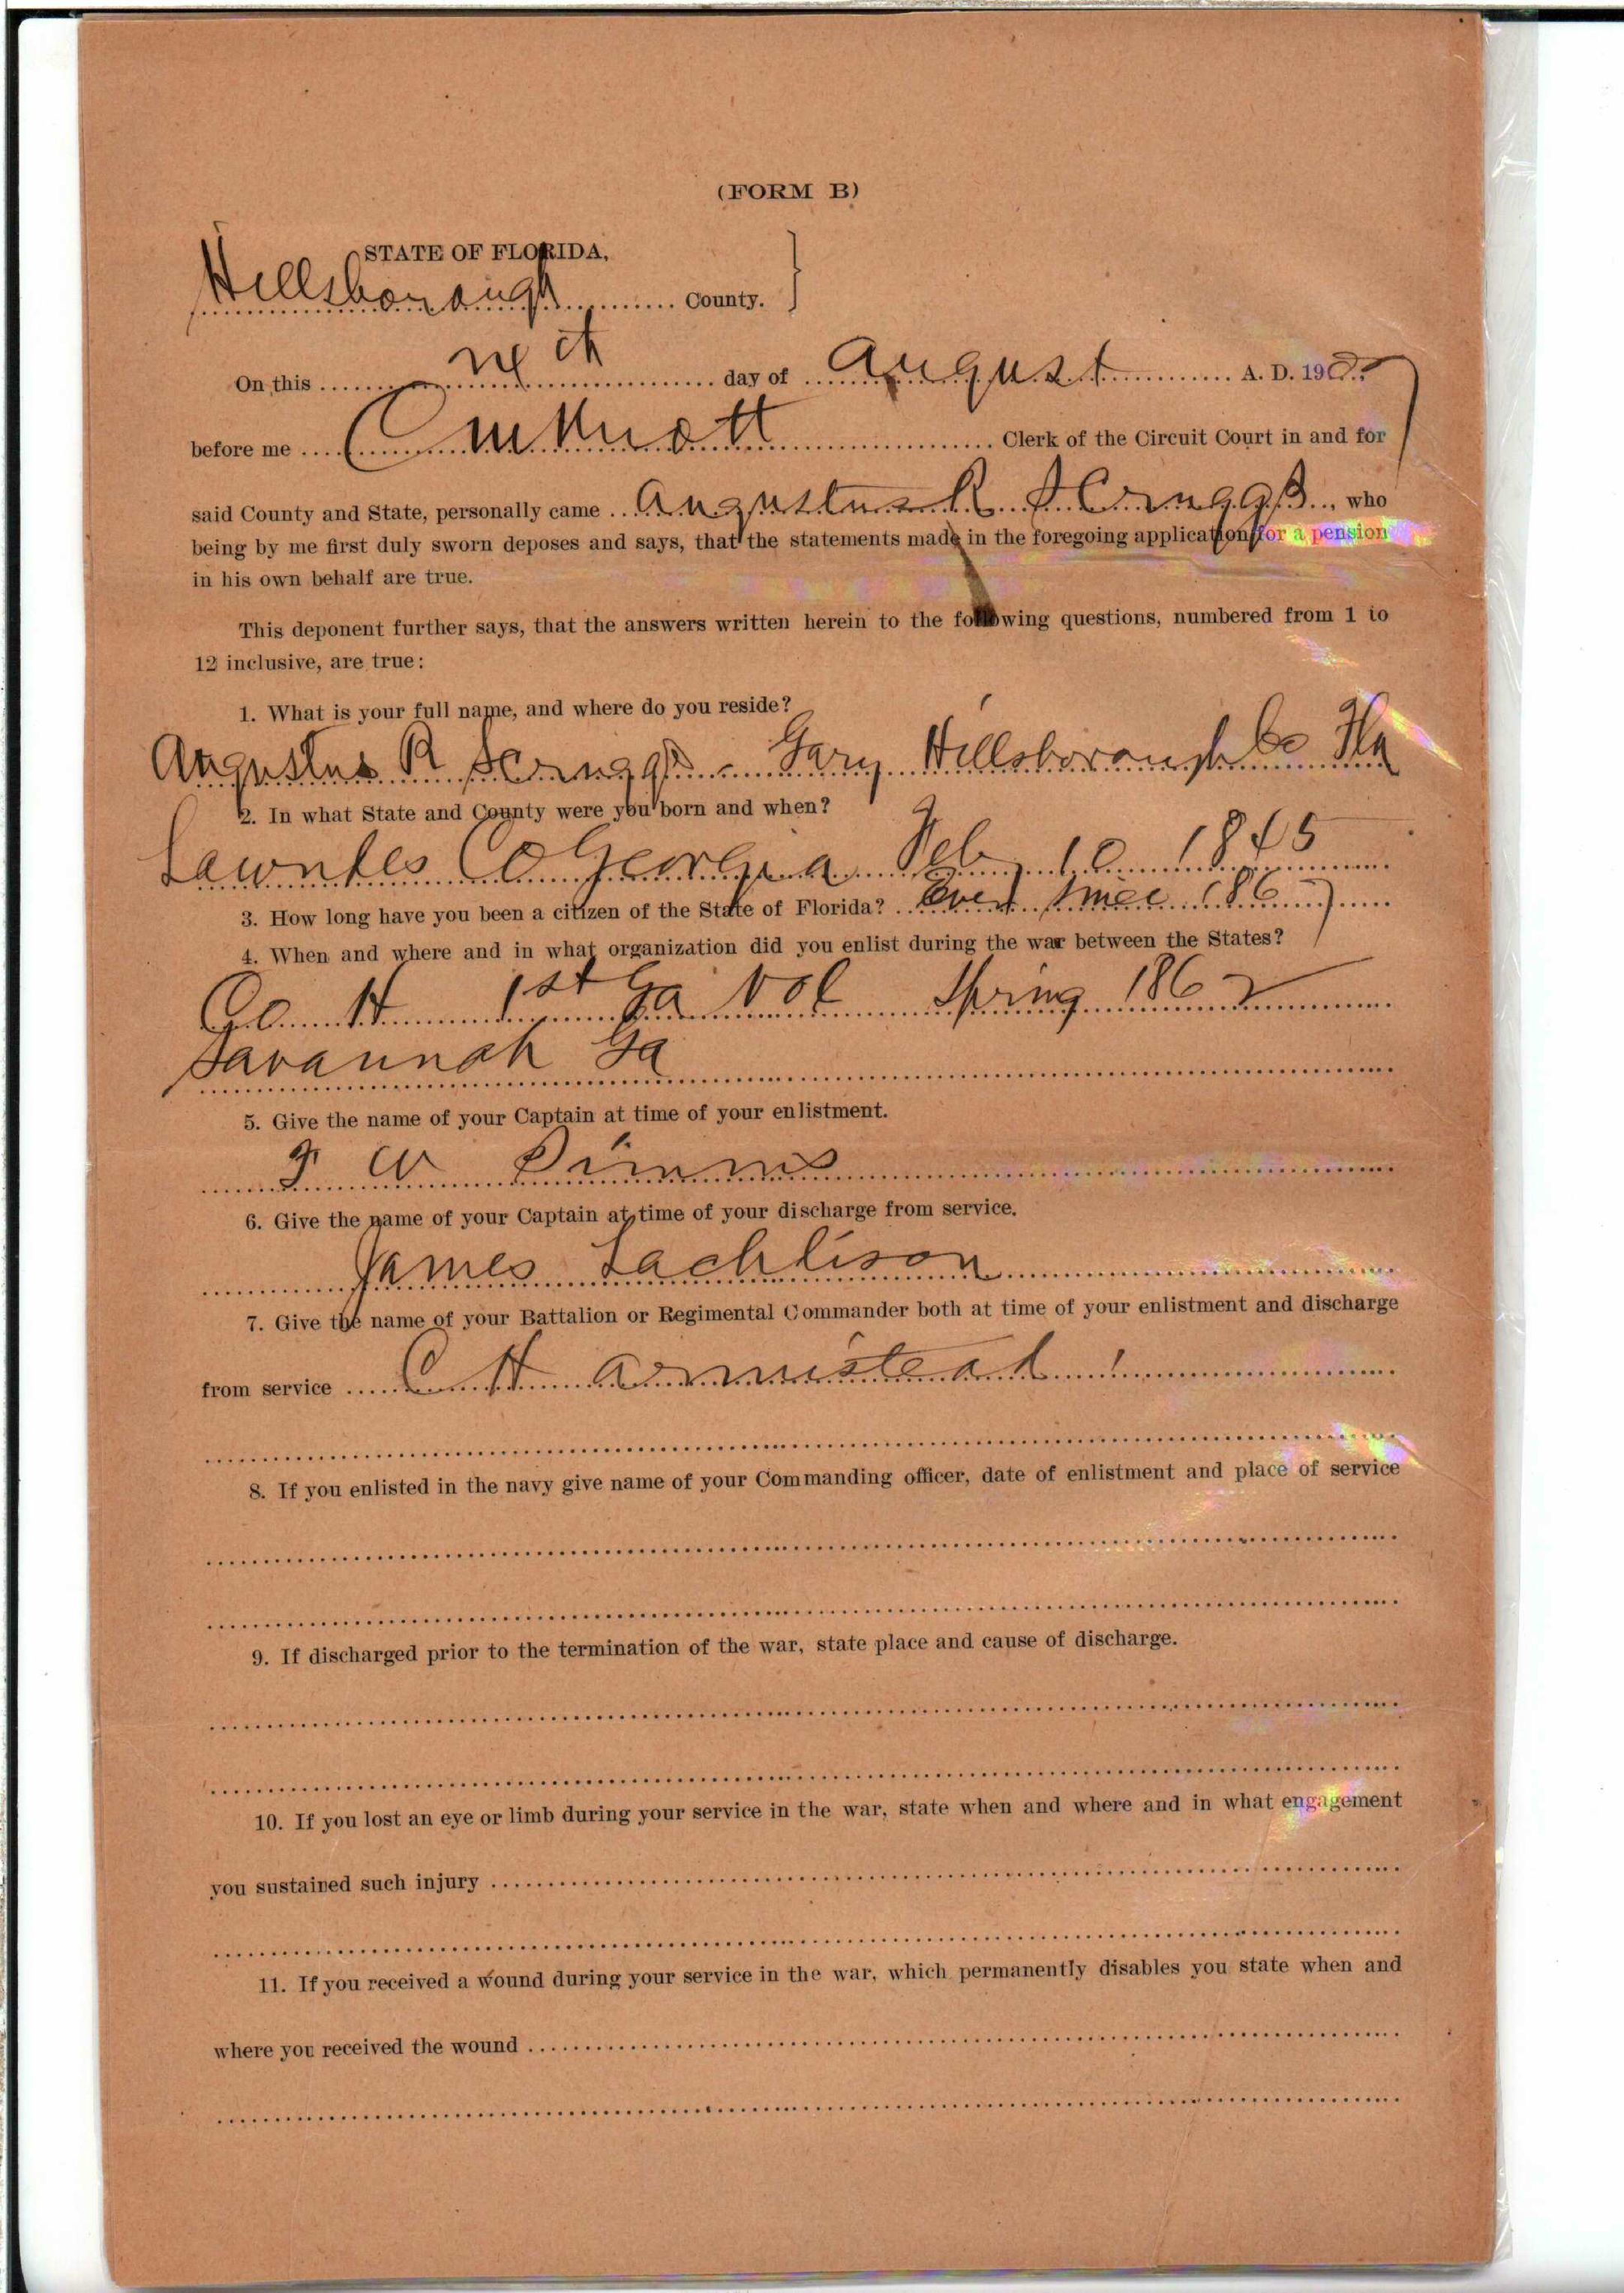 (FORM B)
STATE OF FLORIDA,
Hillsborough County.
On this day of August A. D. 190
before me C M Knott Clerk of the Circuit Court in and for
said County and State, personally came Augustus R Scruggs, who
being by me first duly sworn deposes and says, that the statements made in the foregoing application for a pension
in his own behalf are true.
This deponent further says, that the answers written herein to the following questions, numbered from 1 to
12 inclusive, are true:
1. What is your full name, and where do you reside?
Augustus R Scruggs - Gary Hillsborough Co Fla
2. In what State and County were you born and when?
Lowndes Co Georgia Feby 10 1845
3. How long have you been a citizen of the State of Florida? Ever since 1867
4. When and where and in what organization did you enlist during the war between the States?
Co H 1st Ga Vol Spring 1862
Savannah Ga
5. Give the name of your Captain at time of your enlistment.
W Simms
6. Give the name of your Captain at time of your discharge from service.
James Lachlison
7. Give the name of your Battalion or Regimental Commander both at time of your enlistment and discharge
from service C H Armistead
8. If you enlisted in the navy give name of your Commanding officer, date of enlistment and place of service
9. If discharged prior to the termination of the war, state place and cause of discharge.
10. If you lost an eye or limb during your service in the war, state when and where and in what engagement
you sustained such injury
11. If you received a wound during your service in the war, which permanently disables you state when and
where you received the wound